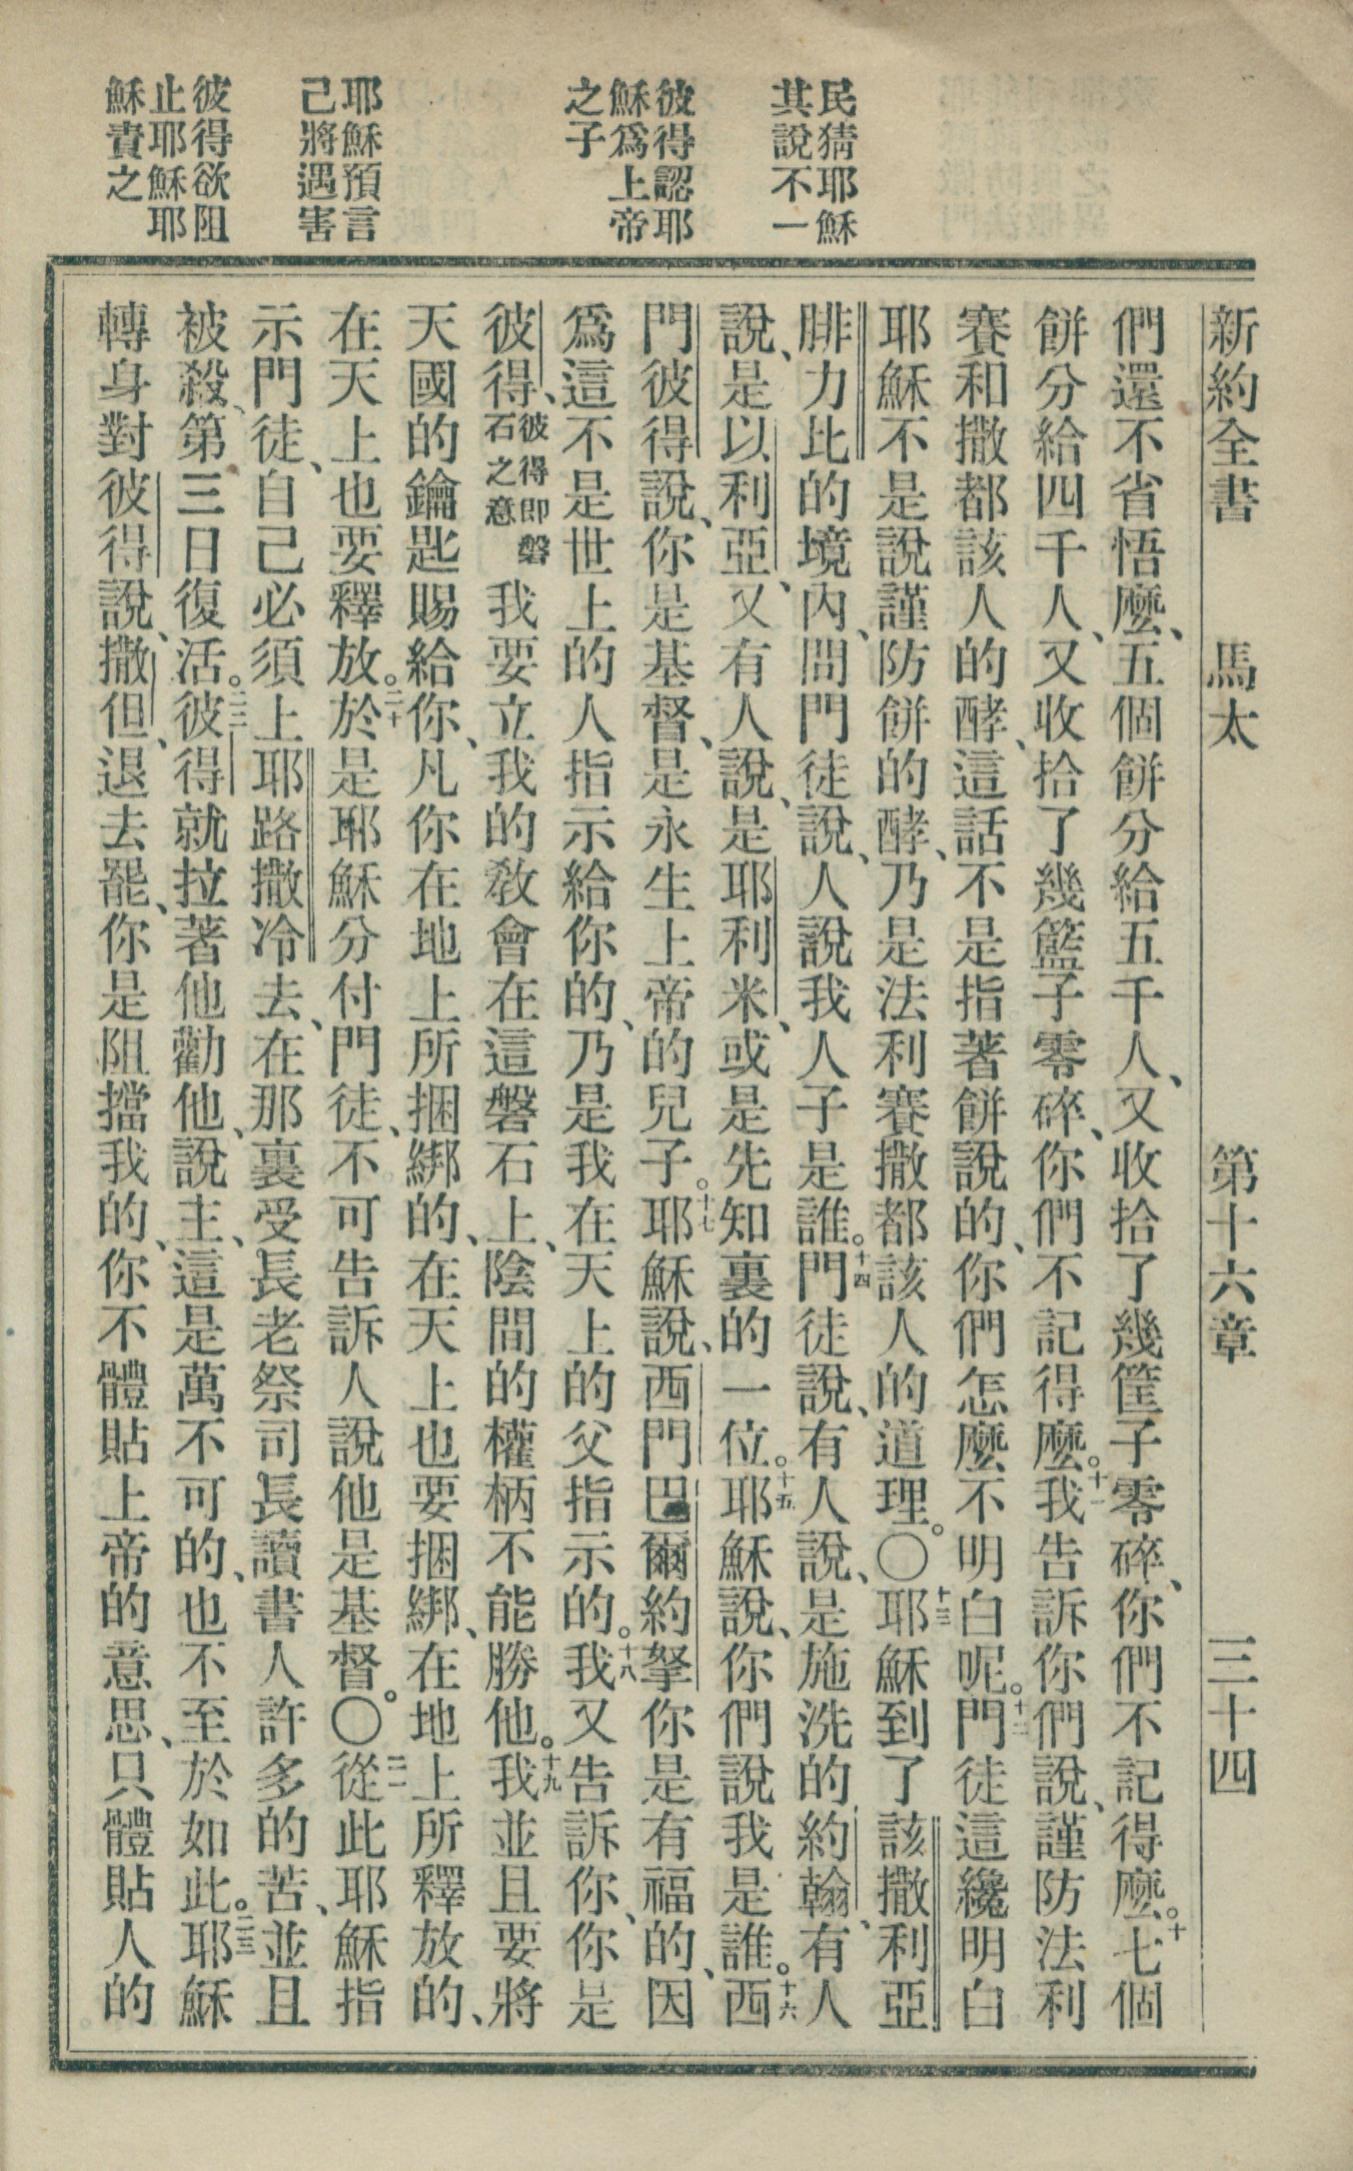 民猜耶穌
其說不一
彼得認耶
穌爲上帝
之子
耶穌預言
己將遇害
彼得欲阻
止耶穌耶
穌責之
新約全書 馬太 第十六章 三十四
們還不省悟麼、五個餅分給五千人、又收拾了幾筐子零碎、你們不記得麼。十七個
餅分給四千人、又收拾了幾籃子零碎、你們不記得麼。十一我告訴你們說、謹防法利
賽和撒都該人的酵、這話不是指著餅說的、你們怎麼不明白呢。十二門徒這纔明白
耶穌不是說謹防餅的酵、乃是法利賽撒都該人的道理。〇十三耶穌到了該撒利亞
腓力比的境內、問門徒說、人說我人子是誰。十四門徒說、有人說、是施洗的約翰、有人
說、是以利亞、又有人說、是耶利米、或是先知裏的一位。十五耶穌說、你們說我是誰。十六西
門彼得說、你是基督、是永生上帝的兒子。十七耶穌說、西門巴爾約拏你是有福的、因
爲這不是世上的人指示給你的、乃是我在天上的父指示的。十八我又告訴你、你是
彼得、彼得即磐石之意我要立我的敎會在這磐石上、陰間的權柄不能勝他。十九我並且要將
天國的鑰匙賜給你、凡你在地上所捆綁的、在天上也要捆綁、在地上所釋放的、
在天上也要釋放。二十於是耶穌分付門徒、不可告訴人說他是基督。〇二一從此耶穌指
示門徒、自己必須上耶路撒冷去、在那裏受長老祭司長讀書人許多的苦、並且
被殺、第三日復活。二二彼得就拉著他勸他、說主、這是萬不可的、也不至於如此。二三耶穌
轉身對彼得說、撒但、退去罷、你是阻擋我的、你不體貼上帝的意思、只體貼人的